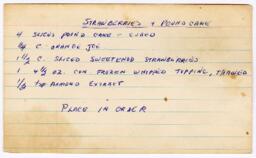 STRAWBERRIES & POUND CAKE
4 SLICES POUND CAKE - CUBED
C. ORANGE JCE
1 1/2 C. SLICED SWEETENED STRAWBERRIES
1 4 1/2 OZ. CON FROZEN WHIPPED TOPPING, THAWED
ALMOND EXTRACT
PLACE IN ORDER